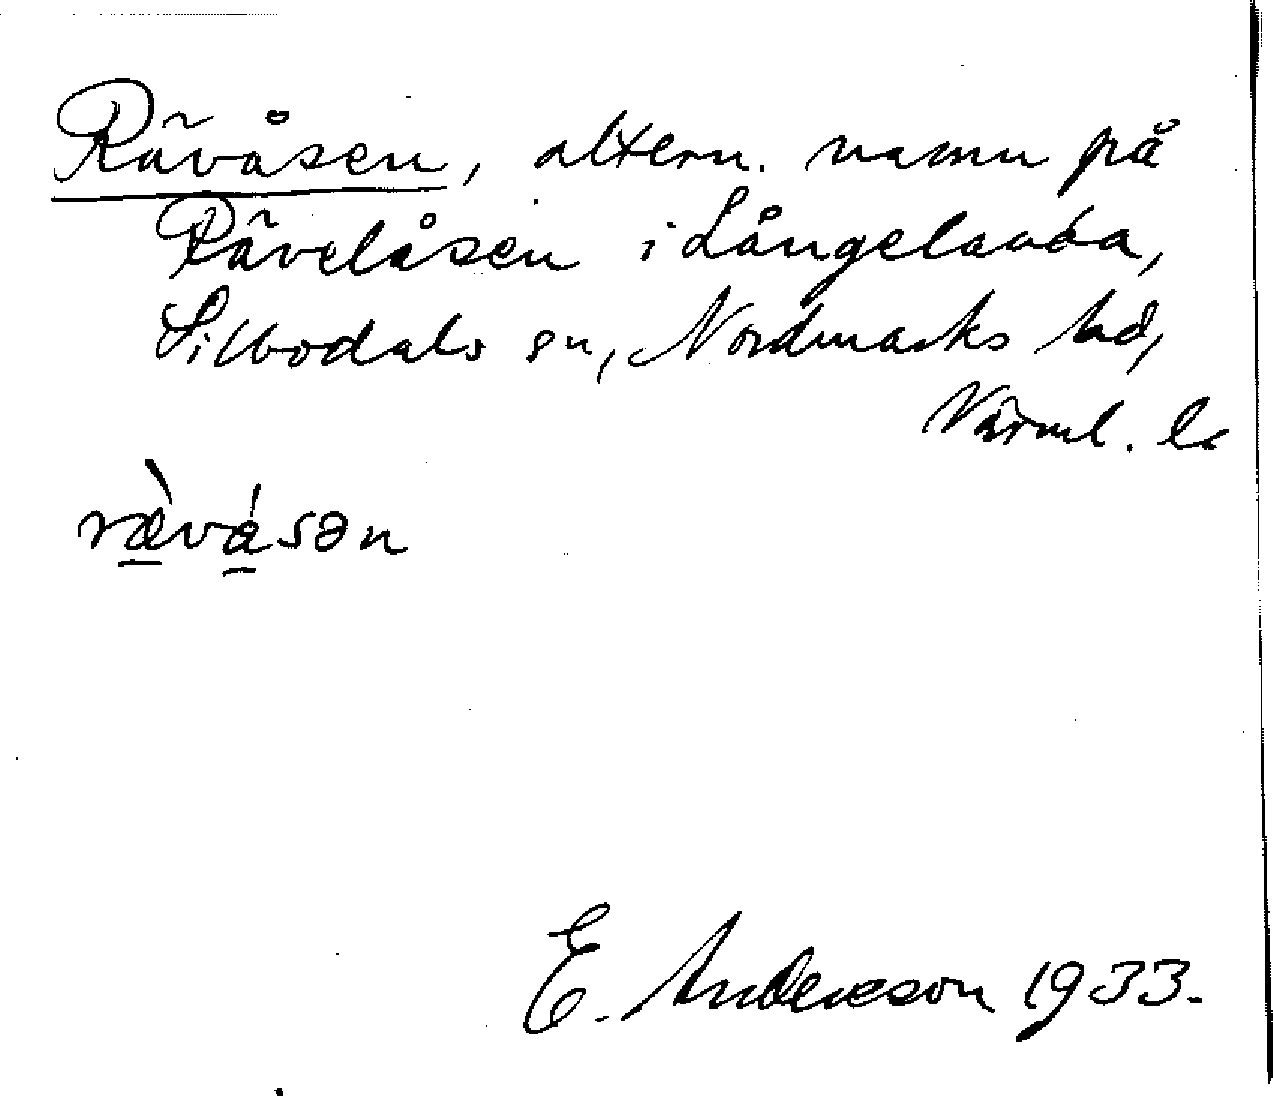 Rävåsen, altern. namn på
Rävelåsen i Långelanda,
Silbodals sn, Nordmarks hd,
Värml. l.
rævåsən
E. Andersson 1933.